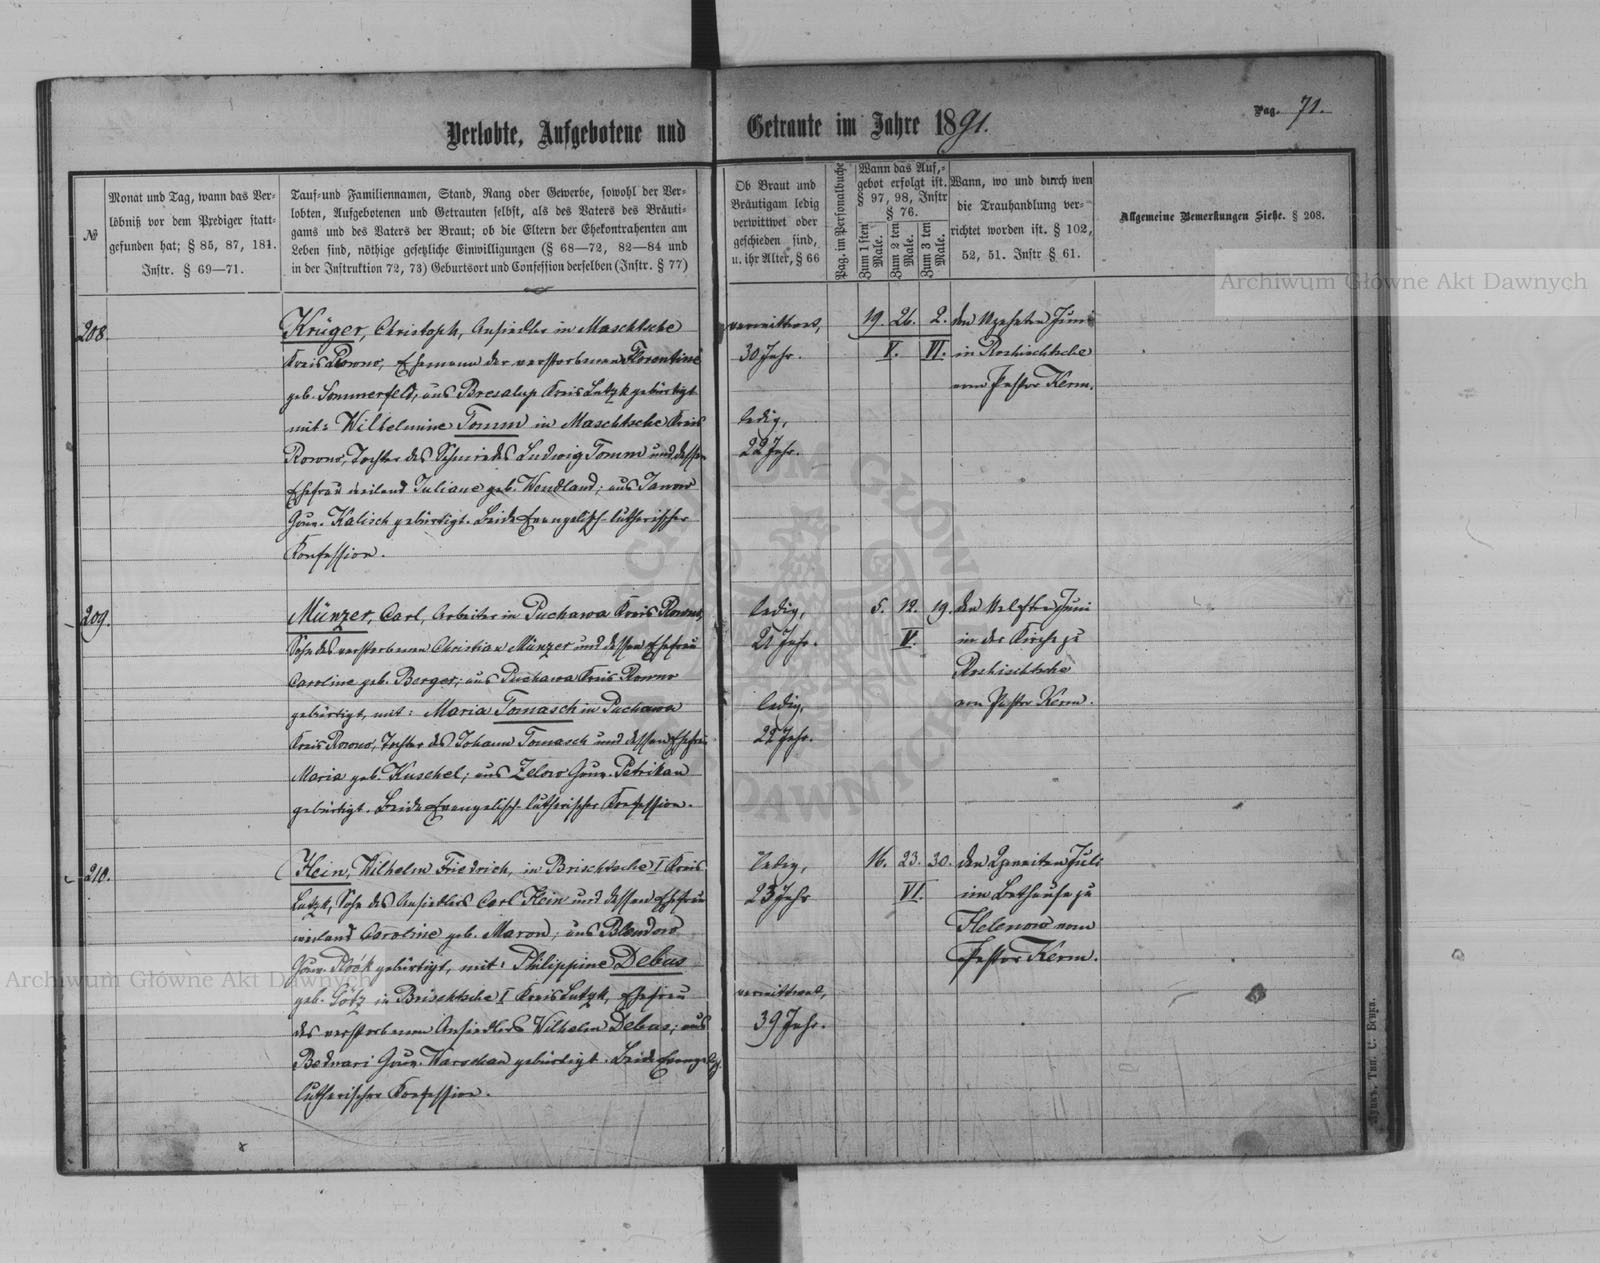 Verlobte, Aufgebotene und Getraute im Jahre 1891.
Pag. 71.
№
Monat und Tag, wann das Ver-
löbniß vor dem Prediger statt-
gefunden hat; § 85, 87, 181.
Instr. § 69—71.
Tauf-und Familiennamen, Stand, Rang oder Gewerbe, sowohl der Ver-
lobten, Aufgebotenen und Getrauten selbst, als des Vaters des Bräuti-
gams und des Vaters der Braut; ob die Eltern der Ehekontrahenten am
Leben sind, nöthige gesetzliche Einwilligungen (§ 68—72, 82—84 und
in der Instruktion 72, 73) Geburtsort und Confession derselben (Instr. § 77)
Ob Braut und
Bräutigam ledig
verwittwet oder
geschieden sind,
u. ihr Alter, § 66
Pag. im Personalbuche
Wann das Auf,-
gebot erfolgt ist.
§ 97, 98, Instr
§ 76.
Zum 1 sten
Male.
Zum 2 ten
Male.
Zum 3 ten
Male.
Wann, wo und durch wen
die Trauhandlung ver-
richtet worden ist. § 102,
52, 51. Instr § 61.
Allgemeine Bemerkungen Siehe. § 208.
208.
Krüger, Christoph, Ansiedler in Maschtsche
Kreis Rowno, Ehemann der verstorbenen Florentine
geb. Sommerfeld, aus Kreis Lutzk gebürtigt
mit: Wilhelmine Tomm in Maschtsche Kreis
Rowno, Tochter des Schmiedes Ludwig Tomm und dessen
Ehefrau weiland Juliane geb. Wendland; aus Janow
Gouv. Kalisch gebürtigt. Beide Evangelisch-lutherischer
Konfession.
verwittwet,
30 Jahr.
ledig,
22 Jahr.
19. 26. 2.
V. VI.
den Juni
in Roshischtsche
vom Pastor Kerm.
209.
Münzer, Carl, Arbeiter in Puchawa Kreis Rowno,
Sohn des verstorbenen Christian Münzer und dessen Ehefrau
Caroline geb. Berger; aus Puchawa Kreis Rowno
gebürtigt, mit: Maria Tomasch in Puchawa
Kreis Rowno, Tochter des Johann Tomasch und dessen Ehefrau
Maria geb. Kuschel; aus Zelow Gouv. Petrikau
gebürtigt. Beide Evangelisch-lutherischer Konfession.
ledig,
Jahr.
ledig,
22 Jahr.
5. 12. 19.
V.
den Elften Juni
in der Kirche zu
Roshischtsche
vom Pastor Kerm.
210.
Hein, Wilhelm Friedrich, in Brischtsche I Kreis
Lutzk, Sohn des Ansiedlers Carl Hein und dessen Ehefrau
weiland Caroline geb. Maron; aus Blendowo
Gouv. Plock gebürtigt, mit: Philippine Debus
geb. Götz in Brischtsche I Kreis Lutzk, Ehefrau
des verstorbenen Ansiedlers Wilhelm Debus; aus
Bednari Gouv. Warschau gebürtigt. Beide Evangelisch-
lutherischer Konfession.
Ledig,
23 Jahr
verwittwet,
39 Jahr.
16. 23. 30.
VI.
den Zweiten Juli
im Bethause zu
Helenow vom
Pastor Kerm.
Archiwum Główne Akt Dawnych
Archiwum Główne Akt Dawnych